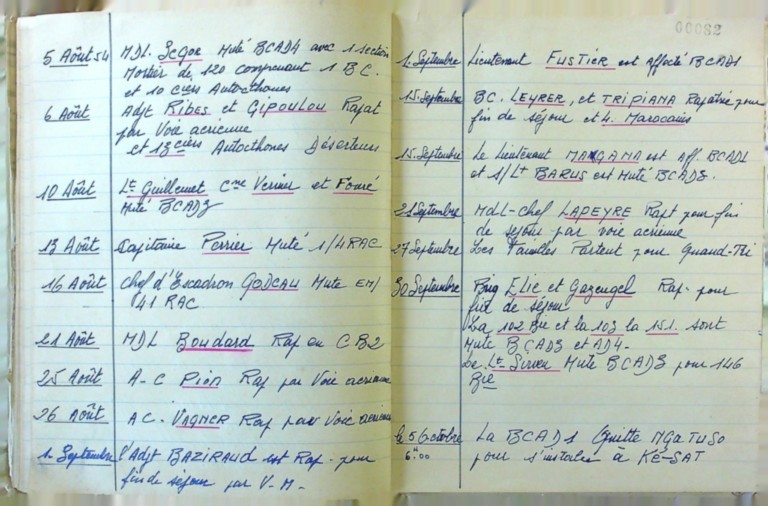 5 Août 54 MDL Segor Muté BCAD4 avec 1 section
Mortier de 120 comprenant 1 BC.
et 10 ciers Autocthones
6 Août Adjt RIBES et GIPOULOU Rapat
par Voie aerienne
et 13 ciers Autocthones Déserteurs
10 Août Lt Guillemet Cne Verrier et Fouré
Muté BCAD3
13 Août Capitaine Perrier Muté 1/4 RAC
16 Août Chef d'Escadron GODEAU Mute EM/
41 RAC
21 Août MDL Boudard Rap en CB2
25 Août A-C Pion Rap par Voie aerienne
26 Août AC. VAGNER Rap par voie aerienne
1. Septembre l'Adjt BAZIRAUD est Rap. pour
fin de séjour par V-M-
00032
1. Septembre Lieutenant FUSTIER est affecté BCAD1
15. Septembre BC. LEYRER, et TRIPIANA Rapatrié pour
fin de séjour et 4. Marocains
15. Septembre Le Lieutenant est Aff. BCAD1
et 1/Lt BARUS est Muté BCAD3.
21 Septembre MdL-chef LAPEYRE Rapt pour fin
de sejour par voie aerienne
27 Septembre Les Familles Partent pour Quand-Tri
30 Septembre Brig ELIE et Gazengel Rap. pour
fin de séjour
La 102 Bie et la 103 la 151. sont
Muté BCAD3 et AD4-
Le Lt Sirven Muté BCAD3 pour 146
Bie
le 5 6 octobre La BCAD1 Quitte MGATUSO
6H00 pour s'installer à KÉ-SAT